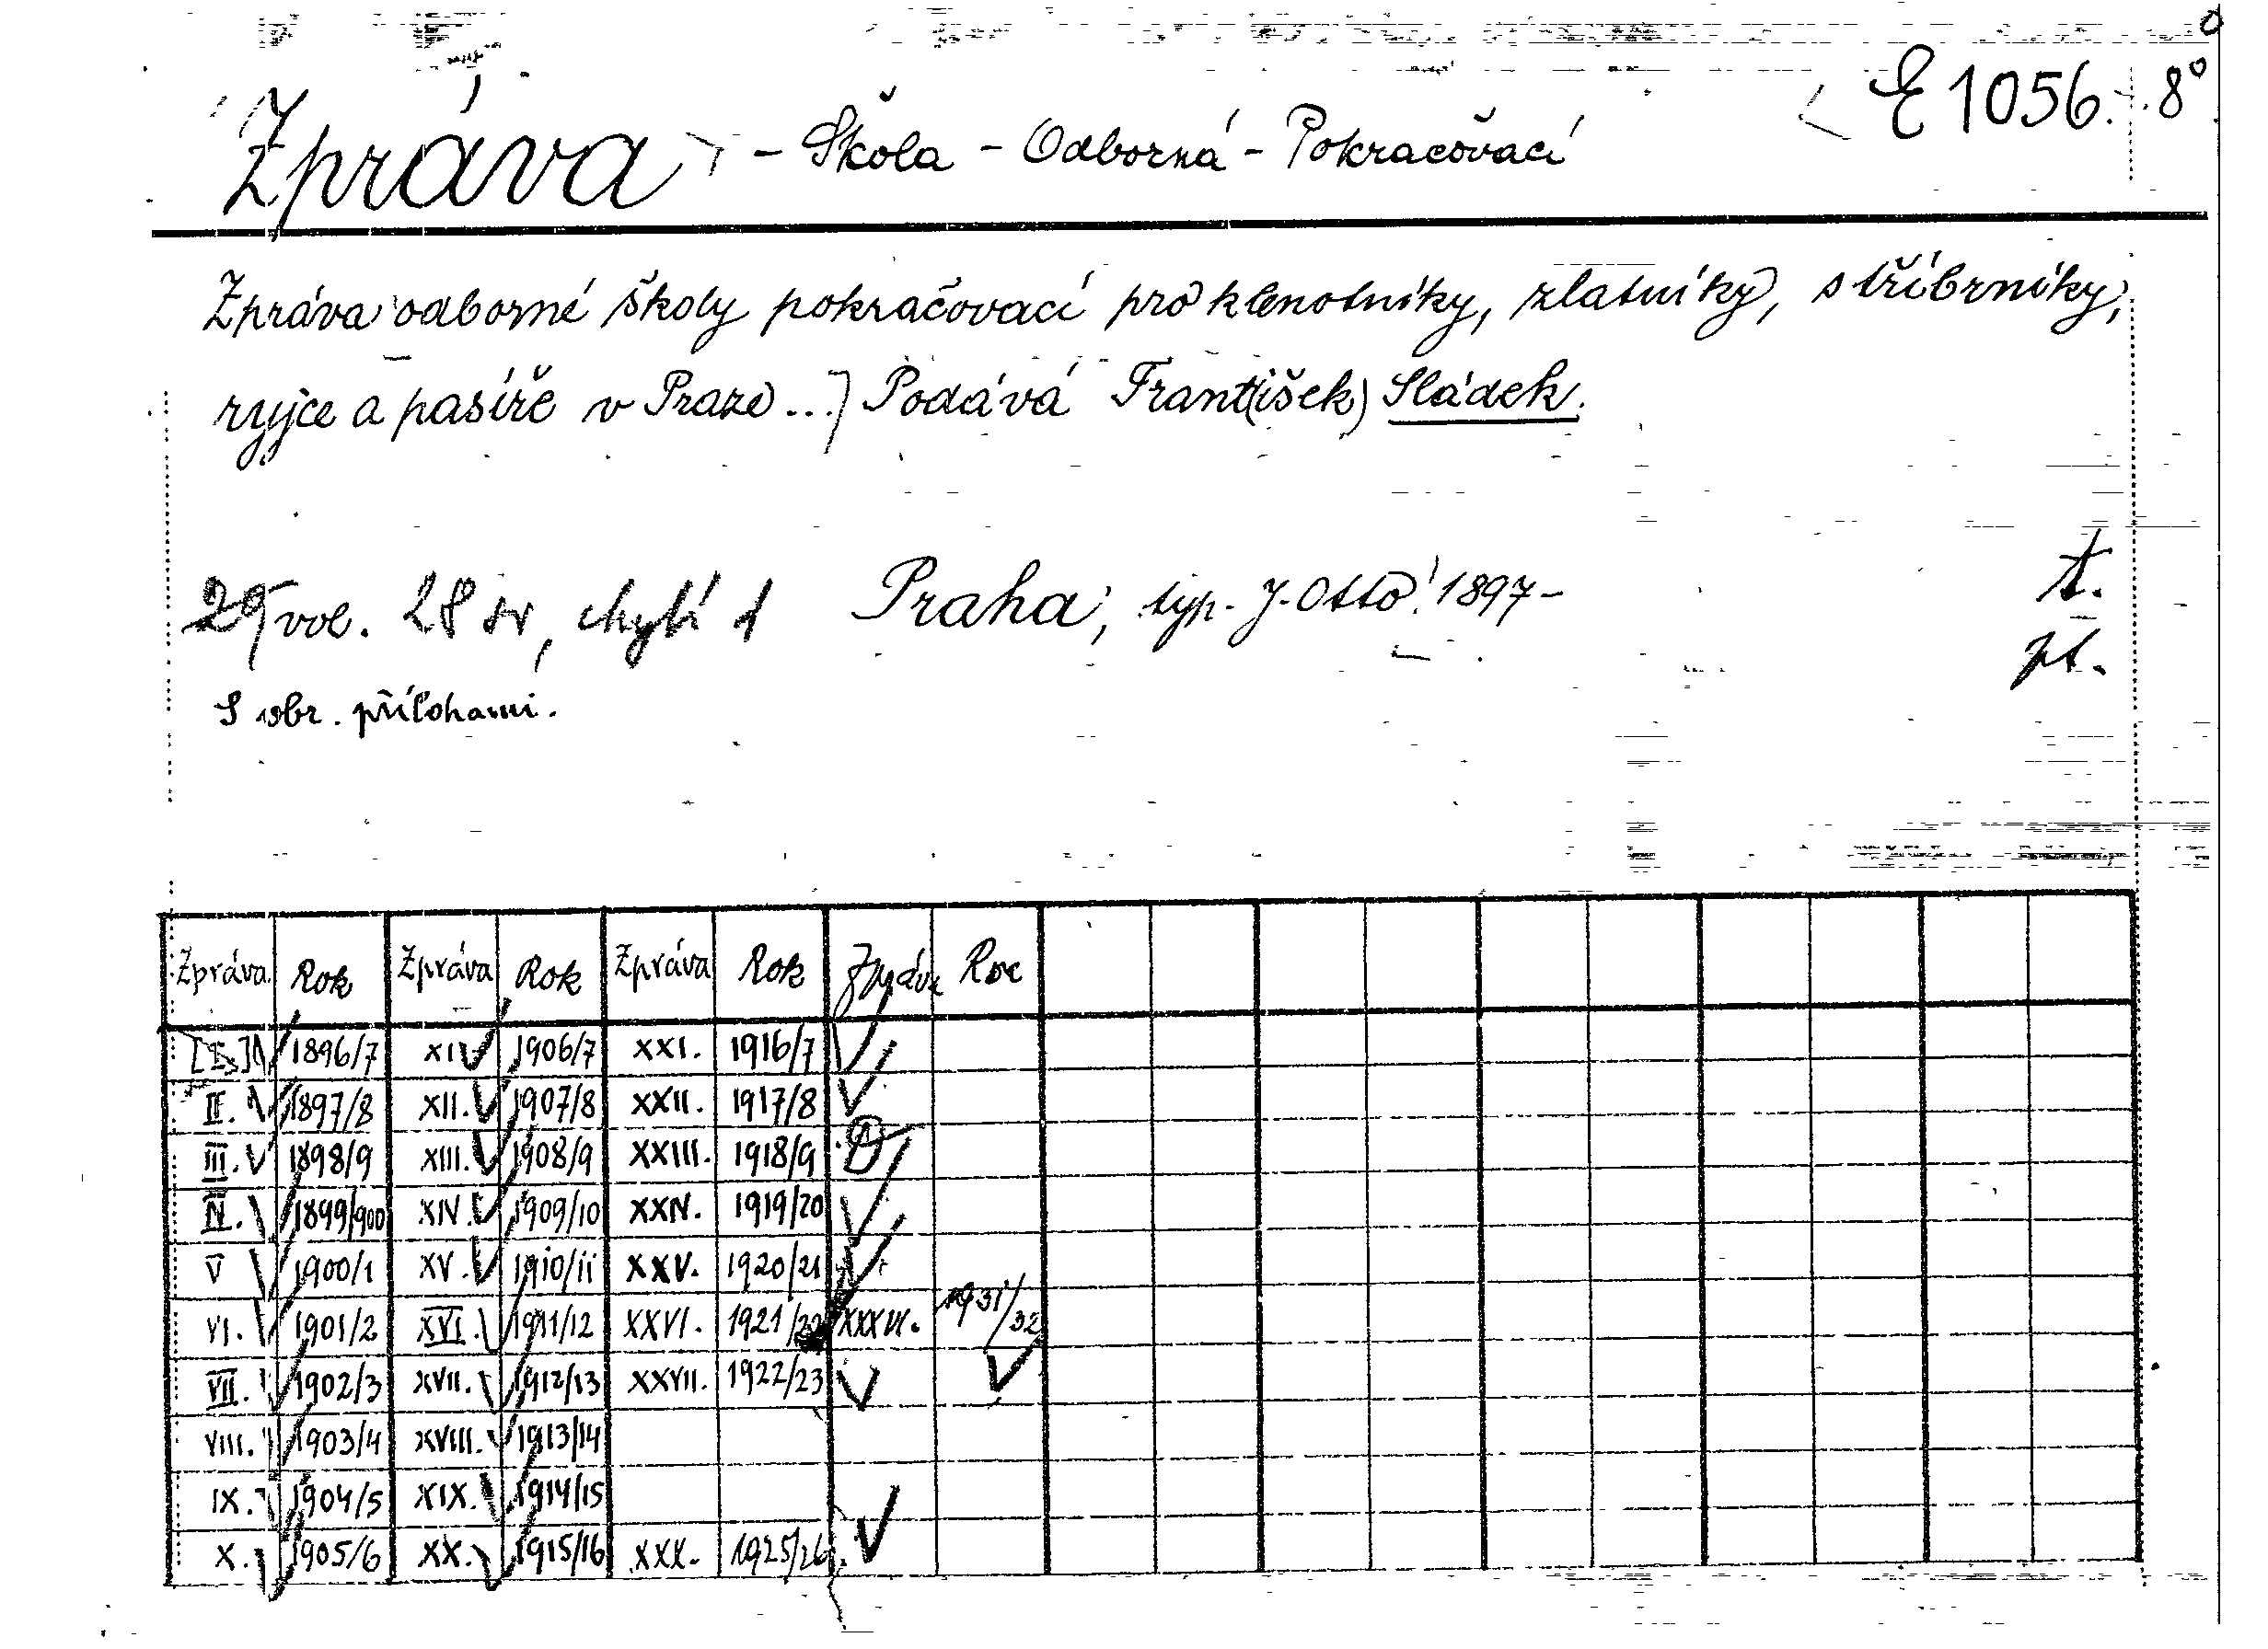 Zpráva - Škola - Odborná - Pokračovací E 1056. 8°
Zpráva odborné školy pokračovací pro klenotníky, zlatníky, stříbrníky,
ryjce a pasíře v Praze ...) Podává Frant(išek) Sládek.
29 vol. 28 sv, chybí 1 Praha, typ. J. Otto 1897- t.
pt.
S obr. přílohami.
Zpráva Rok Zpráva Rok Zpráva Rok Zpráva Rok
[I.] 1896/7 XI 1906/7 XXI. 1916/7
II. 1897/8 XII. 1907/8 XXII. 1917/8
III. 1898/9 XIII. 1908/9 XXIII. 1918/9
IV. 1899/900 XIV. 1909/10 XXIV. 1919/20
V 1900/1 XV. 1910/11 XXV. 1920/21
VI. 1901/2 XVI. 1911/12 XXVI. 1921/22 XXXVI. 1931/32
VII. 1902/3 XVII. 1912/13 XXVII. 1922/23
VIII. 1903/4 XVIII. 1913/14
IX. 1904/5 XIX. 1914/15
X. 1905/6 XX. 1915/16 XXX. 1925/26